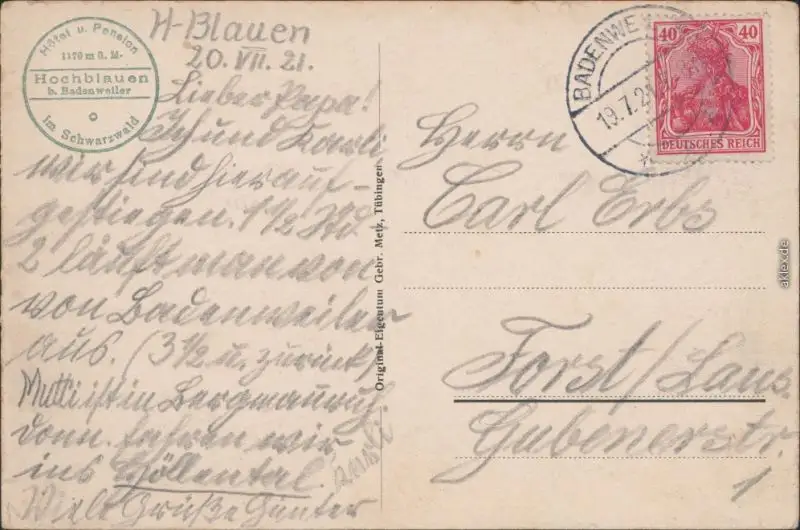 Hôtel u. Pension
1170 m ü. M.
Hochblauen
b. Badenweiler
im Schwarzwald
H-Blauen
20. VII. 21.
Lieber Papa!
Ich und Karli
wir sind hier auf-
gestiegen. 1 1/2 Std.
2 läuft man von
von Badenweiler
aus. (3 1/2 u. zurück)
Mutti ist in
dann fahren wir
ins Höllental.
Viele Grüße Günter
Original-Eigentum Gebr. Metz, Tübingen
BADENWE
19.7.21
40 40
DEUTSCHES REICH
Herrn
Carl Erbs
Forst/Laus.
Gubenerstr.
1
aklex.de